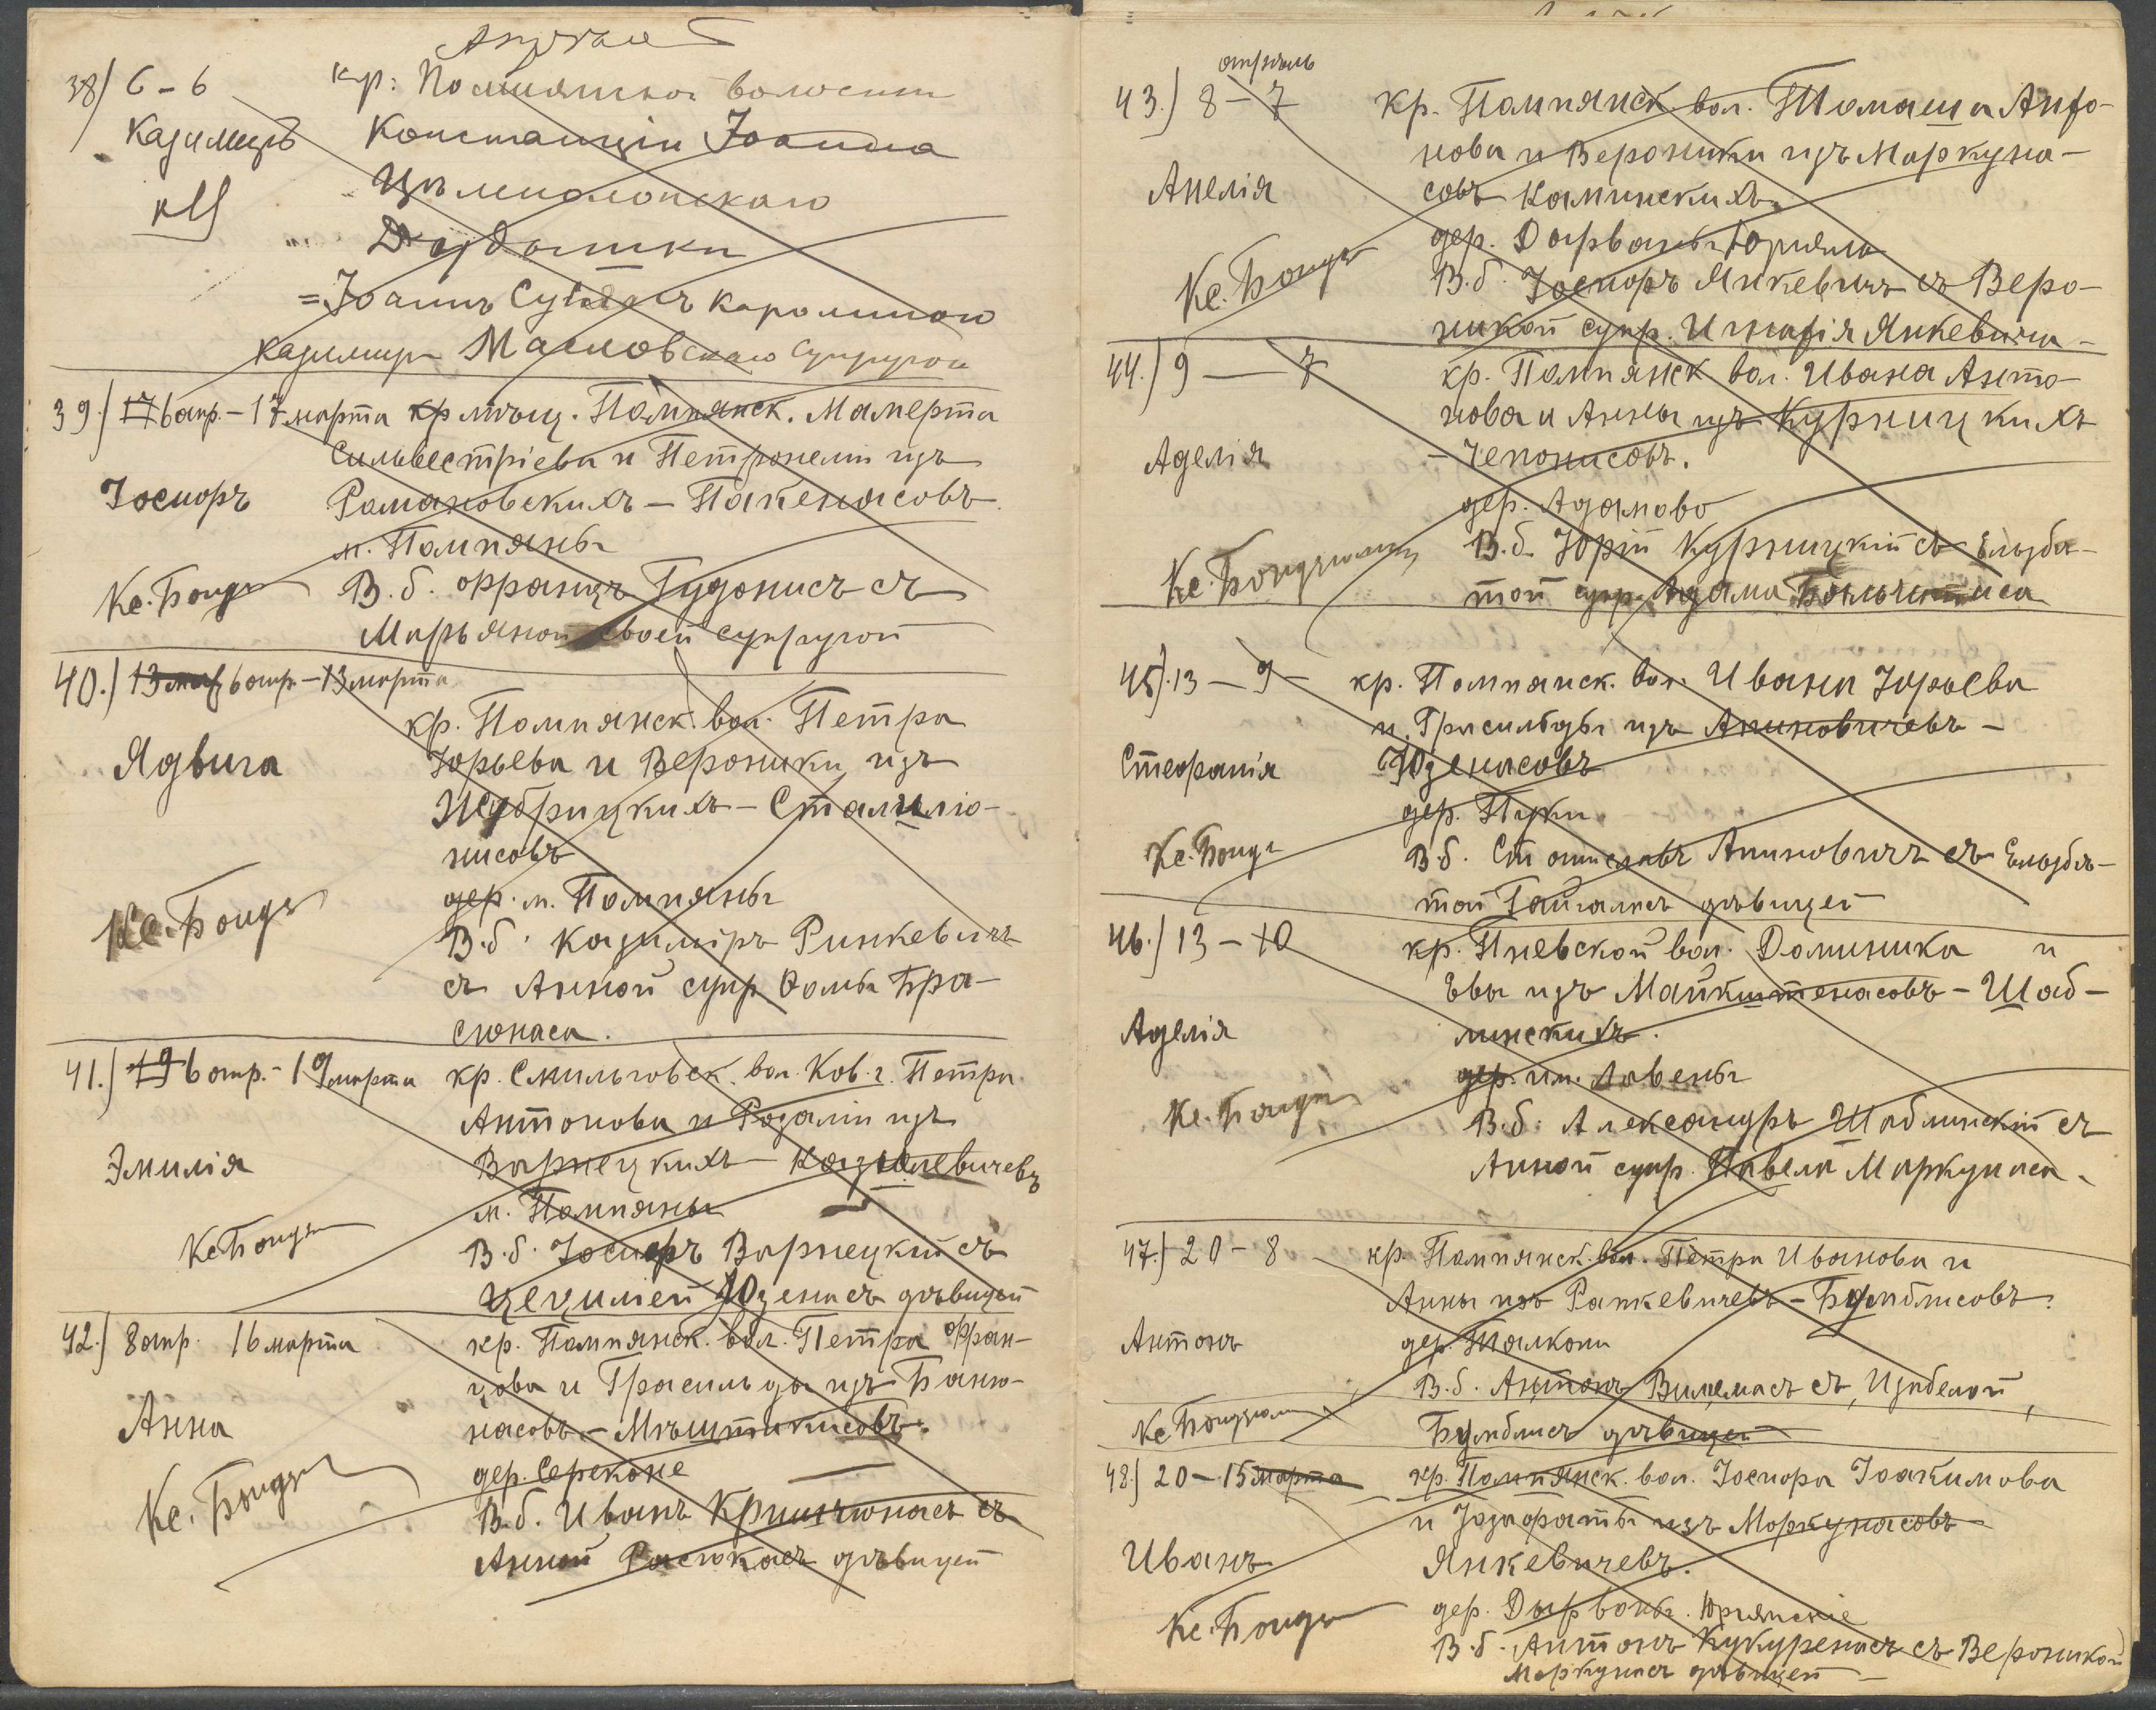 38) 6 – 6 кр: волости
Казимиръ Констанціи Іоанна
Дудышки
= Іоаннъ съ Каролиною
Казимира Масловскаго супругою
39.) 17 6 апр. – 17 марта кр мѣщ. Помпянск. Мамерта
Сильвестріева и Петронели изъ
Іосифъ Романовскихъ – Пакенасовъ.
м. Помпяны
Кс. Бондз В. б. Францъ Гудонисъ съ
Марьяной своей супругой
40.) 13 мар 6 апр – 13 марта
кр. Помпянск. вол. Петра
Ядвига Юрьева и Вероники изъ
– Стамилю-
нисовъ
дер. м. Помпяны
Кс. Бондз В. б. Казиміръ Ринкевичъ
съ Анной супр Фомы Бра-
сюнаса.
41.) 19 6 апр. – 19 марта кр. Смильговск. вол. Ков. г. Петра
Антонова и Розаліи изъ
Эмилія Варнецкихъ –
м. Помпяны
Кс Бондз В. б. Іосифъ Варнецкій съ
Цецилией Юзенасъ дѣвицей
42.) 8 апр. 16 марта кр. Помпянск. вол. Петра Фран-
цова и Грасильды изъ Баню-
Анна насовъ –
дер. Сереконе
Кс. Бондз В. б. Иванъ Кришчюнасъ съ
Анной Расюкасъ дѣвицей
апрѣль
43.) 8 – 7 кр. Помпянск. вол. Томаша Анто-
нова и Вероники изъ Маркуна-
Анелія совъ Каминскихъ.
дер.
Кс. Бондз В. б. Іосифъ Янкевичъ съ Веро-
никой супр. Игнатія Янкевича –
44.) 9 – 7 кр. Помпянск вол. Ивана Анто-
нова и Анны изъ Курницкихъ
Аделія – Чепонисовъ.
дер. Адамово
Кс. Бондз В. б. Юрій Курницкій съ Ельзбе-
той супр. Адама
45.) 13 – 9 – кр. Помпянск. вол. Ивана Юрьева
и Грасильды изъ Ануновичевъ –
Стефанія Юзенасовъ
дер. Пуки
Кс. Бондз В. б. Станиславъ Ануновичъ съ Ельзбе-
той дѣвицей
46.) 13 – 10 кр. Пневской вол. Доминика и
Евы изъ Майкштенасовъ – Шаб-
Аделія линскихъ.
дер. им. Лавены
Кс. Бондз В. б. Александръ Шаблинскій съ
Анной супр. Павела Маркунаса.
47.) 20 – 8 кр. Помпянск. вол. Петра Иванова и
Анны изъ Рапкевичевъ – Бумблисовъ.
Антонъ дер. Талкони
В. б. Антонъ съ Изабелой
Кс Бондз Бумблисъ дѣвицей
48.) 20 – 15 марта кр. Помпянск. вол. Іосифа Іоакимова
и Іозафаты изъ Маркунасовъ
Иванъ Янкевичевъ.
дер.
Кс. Бондз В. б. Антонъ Кукуренасъ съ Вероникой
Маркунасъ дѣвицей –